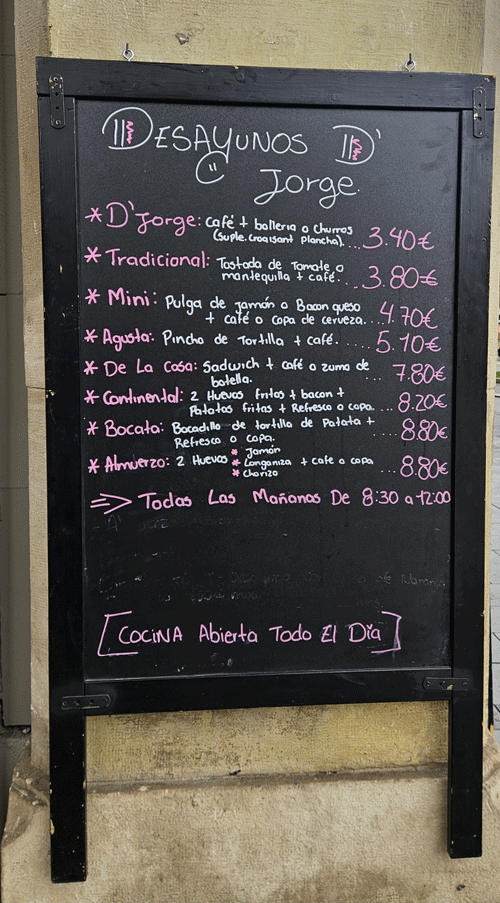 DESAYUNOS D'
Jorge.
* D'Jorge: café + balleria o churros
(suple.croaisant plancha)....3.40€
* Tradicional: Tostada de Tomate o
mantequilla + café. ...3.80€
* Mini: Pulga de jamón o Bacon queso
+ café o copa de cerveza...4.70€
* Agusta: Pincho de Tortilla + café. ....5.10€
* De La Casa: Sadwich + café o zumo de
botella. ... 7.80€
* Continental: 2 Huevos fritos + bacon +
Patatas fritas + Refresco o copa. ...8.20€
* Bocata: Bocadillo de tortilla de Patata +
Refresco o copa. ....8.80€
* Almuerzo: 2 Huevos * Jamón
* Longaniza + cafe o copa ....8.80€
* Chorizo
⇒ Todas Las Mañanas De 8:30 a 12:00
[COCINA Abierta Todo El Día]